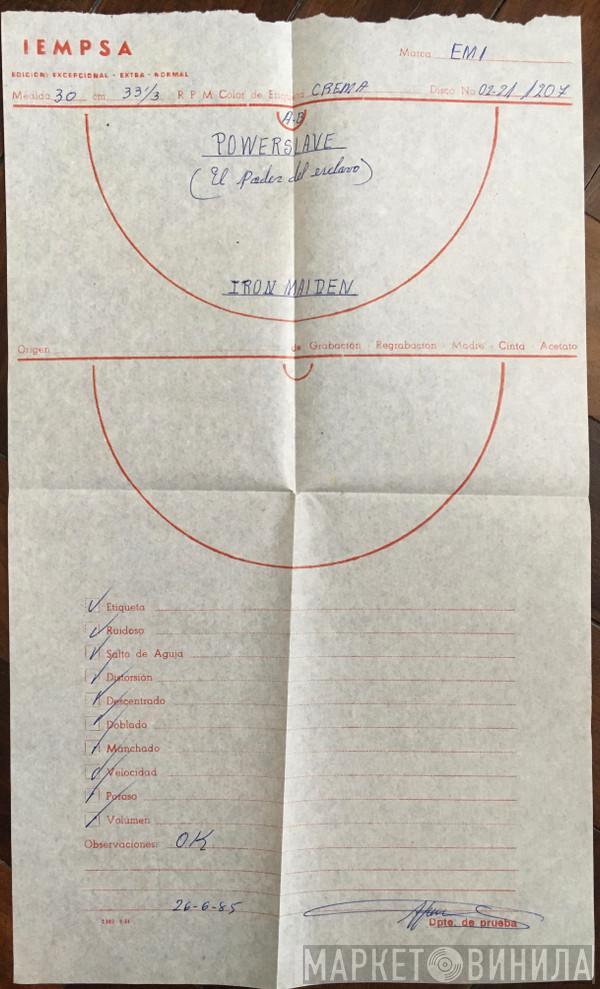 IEMPSA
Marca EMI
EDICION: EXCEPCIONAL - EXTRA - NORMAL
Medida 30 cm. 33 1/3 R P M Color de Etiqueta CREMA Disco No 02-21/1207
A-B
POWERSLAVE
(El Poder del esclavo)
IRON MAIDEN
Origen de Grabación - Regrabación - Madre - Cinta - Acetato
Etiqueta
Ruidoso
Salto de Aguja
Distorsión
Descentrado
Doblado
Manchado
Velocidad
Poroso
Volúmen
Observaciones: O.K
26-6-85
Dpto. de prueba
МАРКЕТ ВИНИЛА